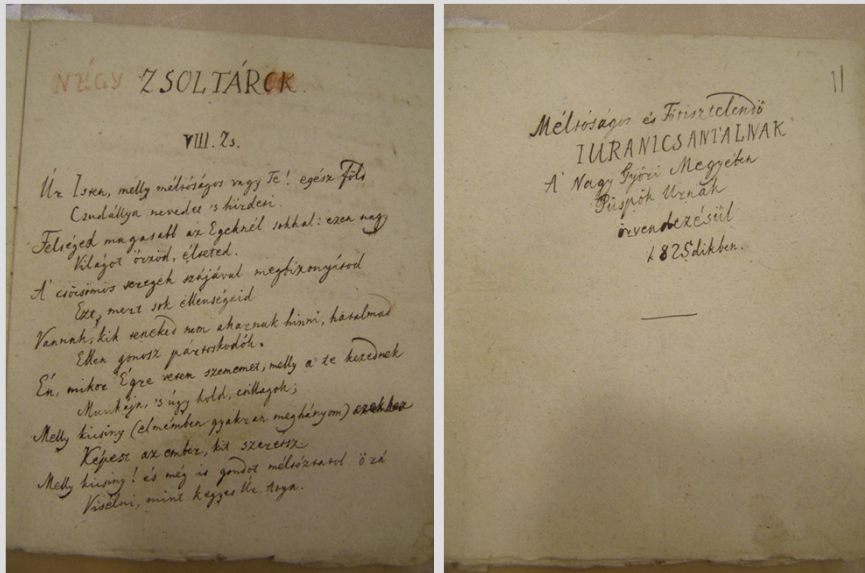 NÉGY ZSOLTÁROK.
VIII. Zs.
Úr Isten, melly méltóságos vagy Te! egész Föld
Csudállya nevedet 's hirdeti.
Felséged magasabb az Egeknél sokkal: ezen nagy
Világot őrzöd, élteted.
A' csöcsömös seregek szájával megbizonyítod
Ezt, mert sok ellenségeid
Vannak, kik teneked nem akarnak hinni, hatalmad
Ellen gonosz pártoskodók.
Én, mikor Égre vetem szememet, melly a' te kezednek
Munkája, 's úgy hold, csillagok;
Melly kicsiny (elmémben gyakran meghányom)
Képest az ember, kit szeretsz
Melly kicsiny! és még is gondot méltóztatol
Viselni, mint kegyes Úr Atya.
11
Méltóságos és Főtisztelendő
IURANICSANTALNAK
A' Nagy Győri Megyében
Püspök Urnak
örvendezésül
1825dikben.